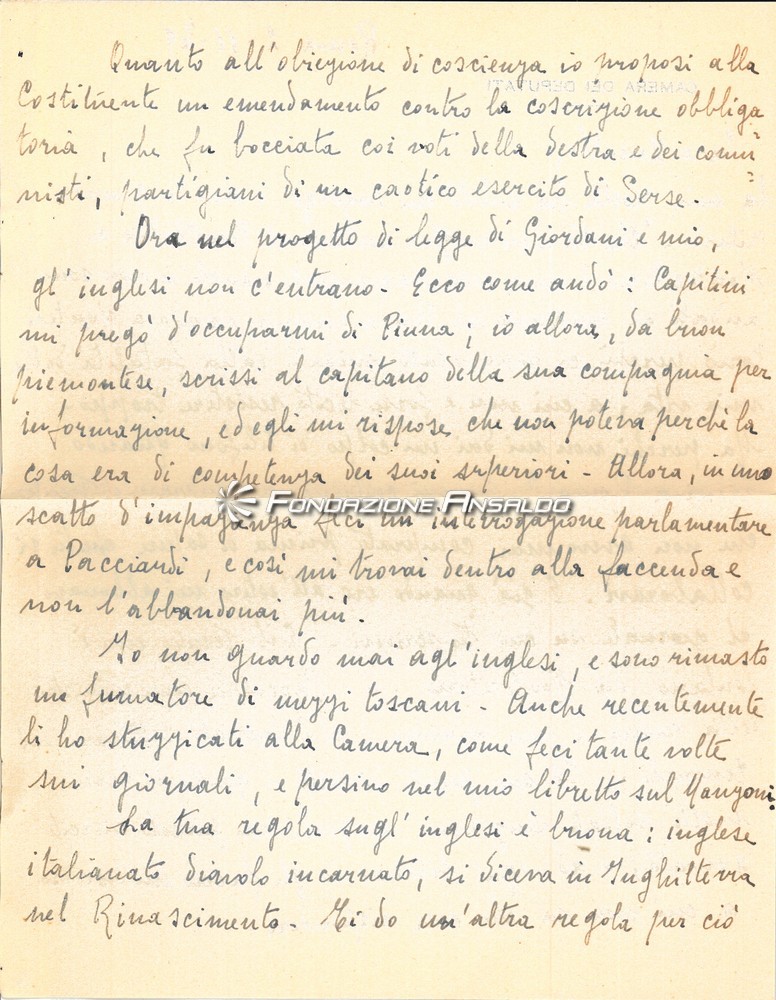 Quanto all'obiezione di coscienza io proposi alla
Costituente un emendamento contro la coscrizione obbliga
toria, che fu bocciata coi voti della destra e dei comu=
nisti, partigiani di un caotico esercito di Serse.
Ora nel progetto di legge di Giordani e mio,
gl'inglesi non c'entrano - Ecco come andò: Capitini
mi pregò d'occuparmi di Pinna; io allora, da buon
piemontese, scrissi al capitano della sua compagnia per
informazione, ed egli mi rispose che non poteva perchè la
cosa era di competenza dei suoi superiori - Allora, in uno
FONDAZIONE ANSALDO
scatto d'impazienza feci un'interrogazione parlamentare
a Pacciardi, e così mi trovai dentro alla faccenda e
non l'abbandonai più.
Io non guardo mai agl'inglesi, e sono rimasto
un fumatore di mezzi toscani - Anche recentemente
li ho stuzzicati alla Camera, come feci tante volte
sui giornali, e persino nel mio libretto sul Manzoni.
La tua regola sugl'inglesi è buona: inglese
italianato diavolo incarnato, si diceva in Inghilterra
nel Rinascimento - Ti do un'altra regola per ciò